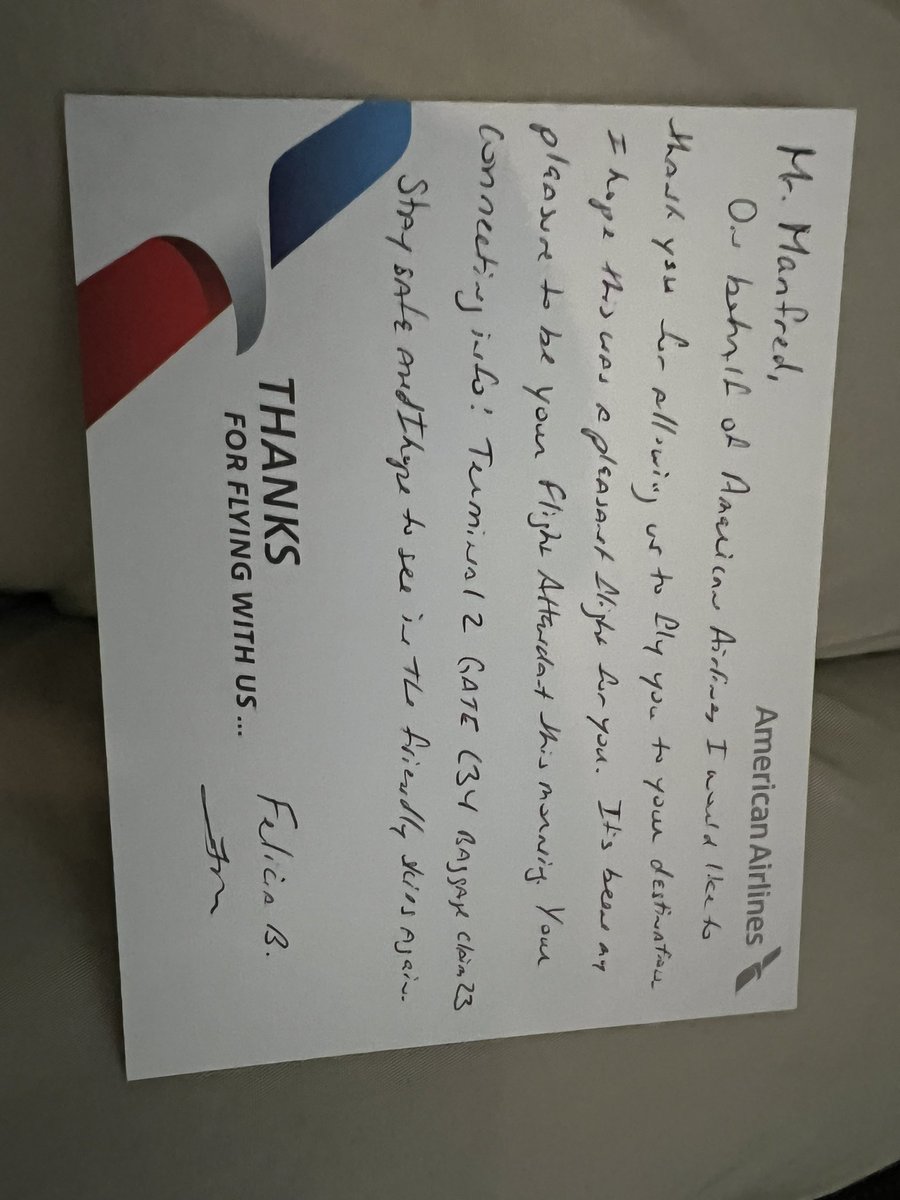 American Airlines
Mr. Manfred,
On behalf of American Airlines I would like to
thank you for allowing us to fly you to your destination
I hope this was a pleasant flight for you. It's been my
pleasure to be your flight Attendant this morning. Your
connecting info: Terminal 2 GATE C34 BAggAge claim 23
Stay safe and I hope to see in the friendly skies again.
THANKS
FOR FLYING WITH US ...
Felicia B.